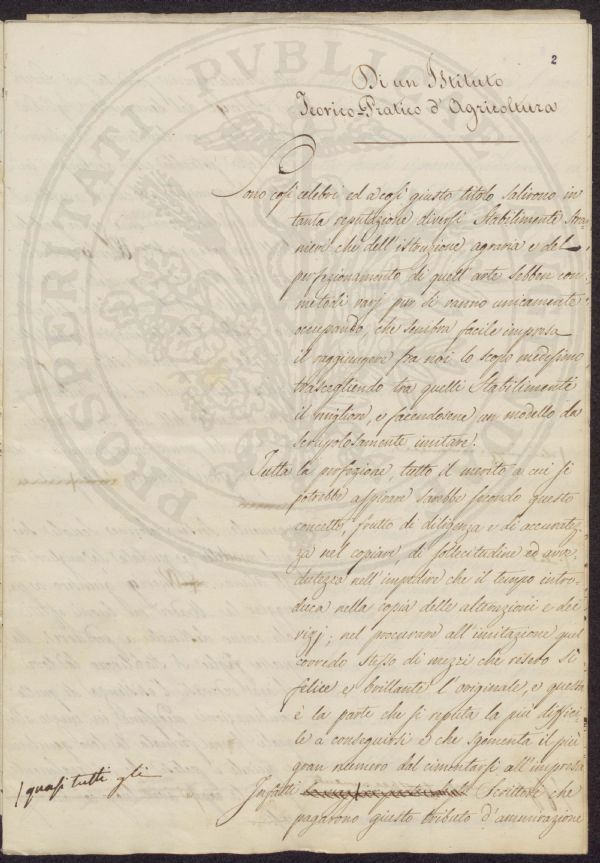 2
Di un Istituto
Teorico-Pratico d'Agricoltura
Sono così celebri ed a così giusto titolo salirono in
tanta reputazione diversi Stabilimenti Stra-
nieri che dell'istruzione agraria e del
perfezionamento di quell'arte sebben con
metodi varj pur si vanno unicamente
occupando, che sembra facile impresa
il raggiugnere fra noi lo scopo medesimo
trascegliendo tra quelli Stabilimenti
il migliore, e facendosene un modello da
scrupolosamente imitare.
Tutta la perfezione, tutto il merito a cui si
potrebbe aspirare sarebbe secondo questo
concetto, frutto di diligenza e di accuratez-
za nel copiare, di sollecitudine ed avve-
dutezza nell'impedire che il tempo intro-
duca nella copia delle alterazioni e dei
vizj; nel procurare all'imitazione quel
corredo stesso di mezzi che resero sì
felice e brillante l'originale, e questa
è la parte che si reputa la più diffici-
le a conseguirsi e che sgomenta il più
gran numero dal cimentarsi all'impresa
/ quasi tutti gli
Infatti Scrittori che
pagarono giusto tributo d'ammirazione
PROSPERITATI PVBLICAE